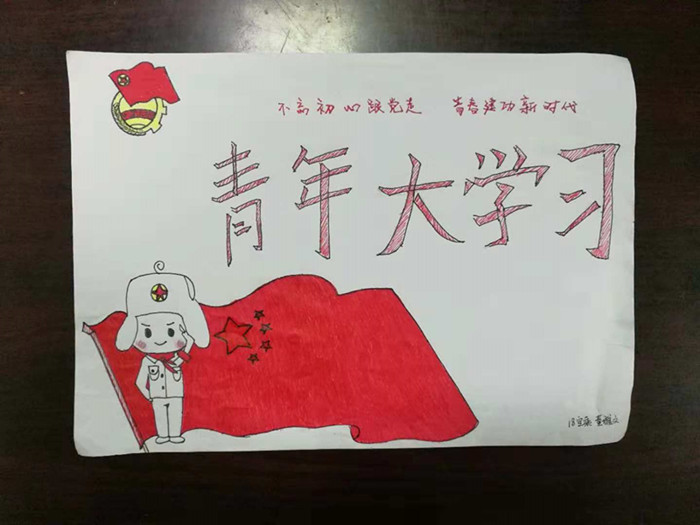 不忘初心跟党走 青春建功新时代
青年大学习